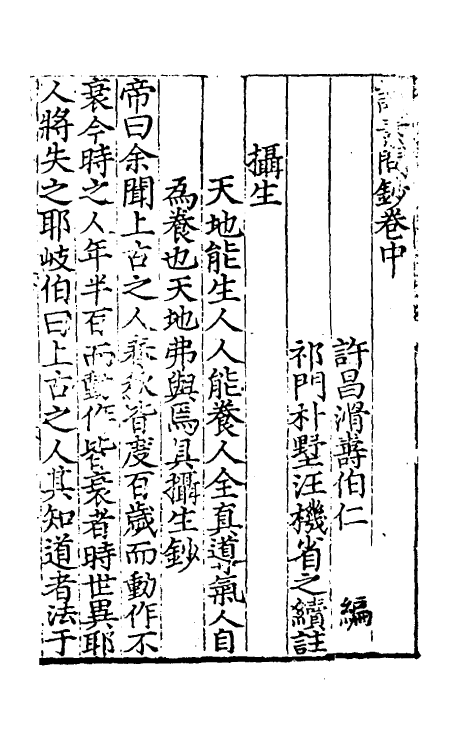 讀素問鈔卷中
許昌滑壽伯仁 編
祁門朴墅汪機省之續註
攝生
天地能生人人能養人全真導氣人自
為養也天地弗與焉具攝生鈔
帝曰余聞上古之人春秋皆度百歲而動作不
衰今時之人年半百而動作皆衰者時世異耶
人將失之耶岐伯曰上古之人其知道者法于